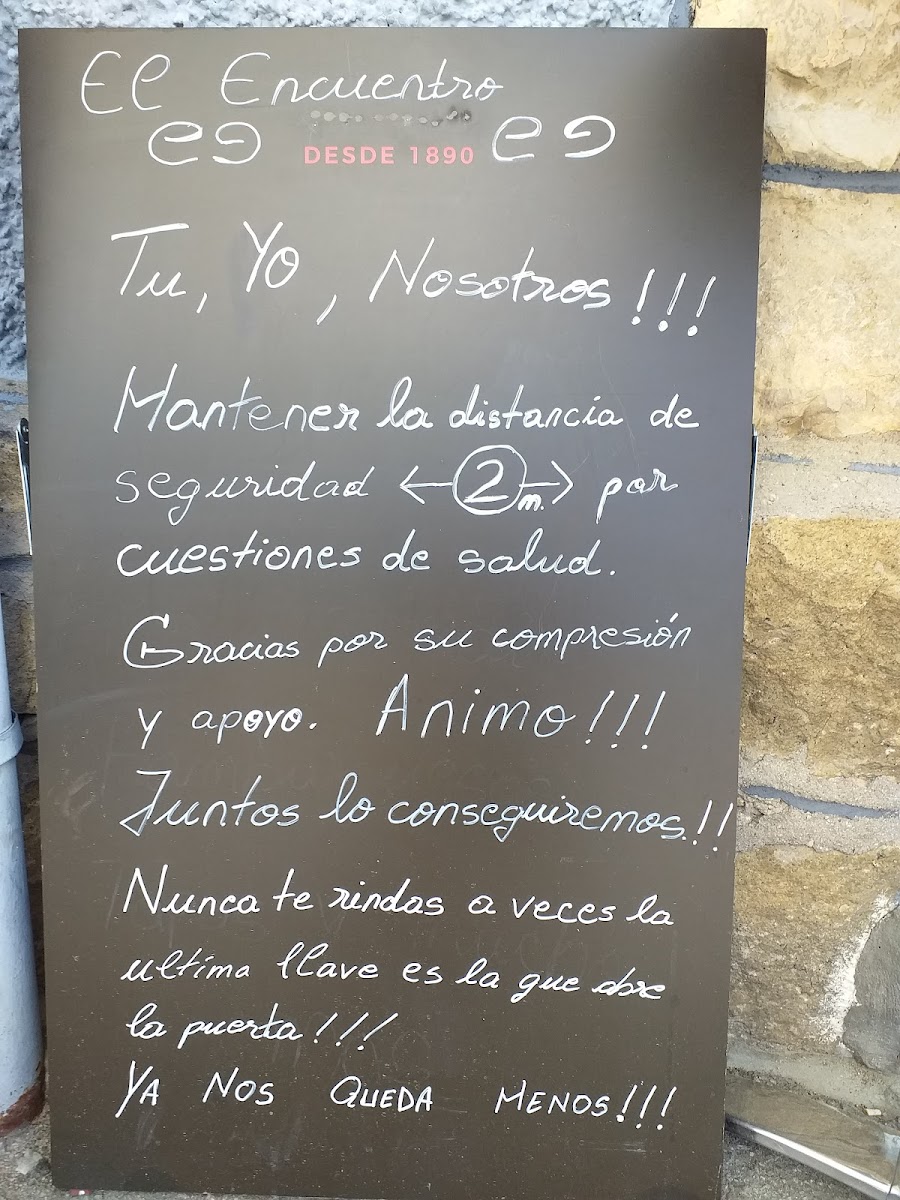 El Encuentro
DESDE 1890
Tu, Yo, Nosotros!!!
Mantener la distancia de
seguridad ←2m.→ por
cuestiones de salud.
Gracias por su compresión
y apoyo. Animo!!!
Juntos lo conseguiremos.!!
Nunca te rindas a veces la
ultima llave es la que abre
la puerta!!!
YA NOS QUEDA MENOS!!!